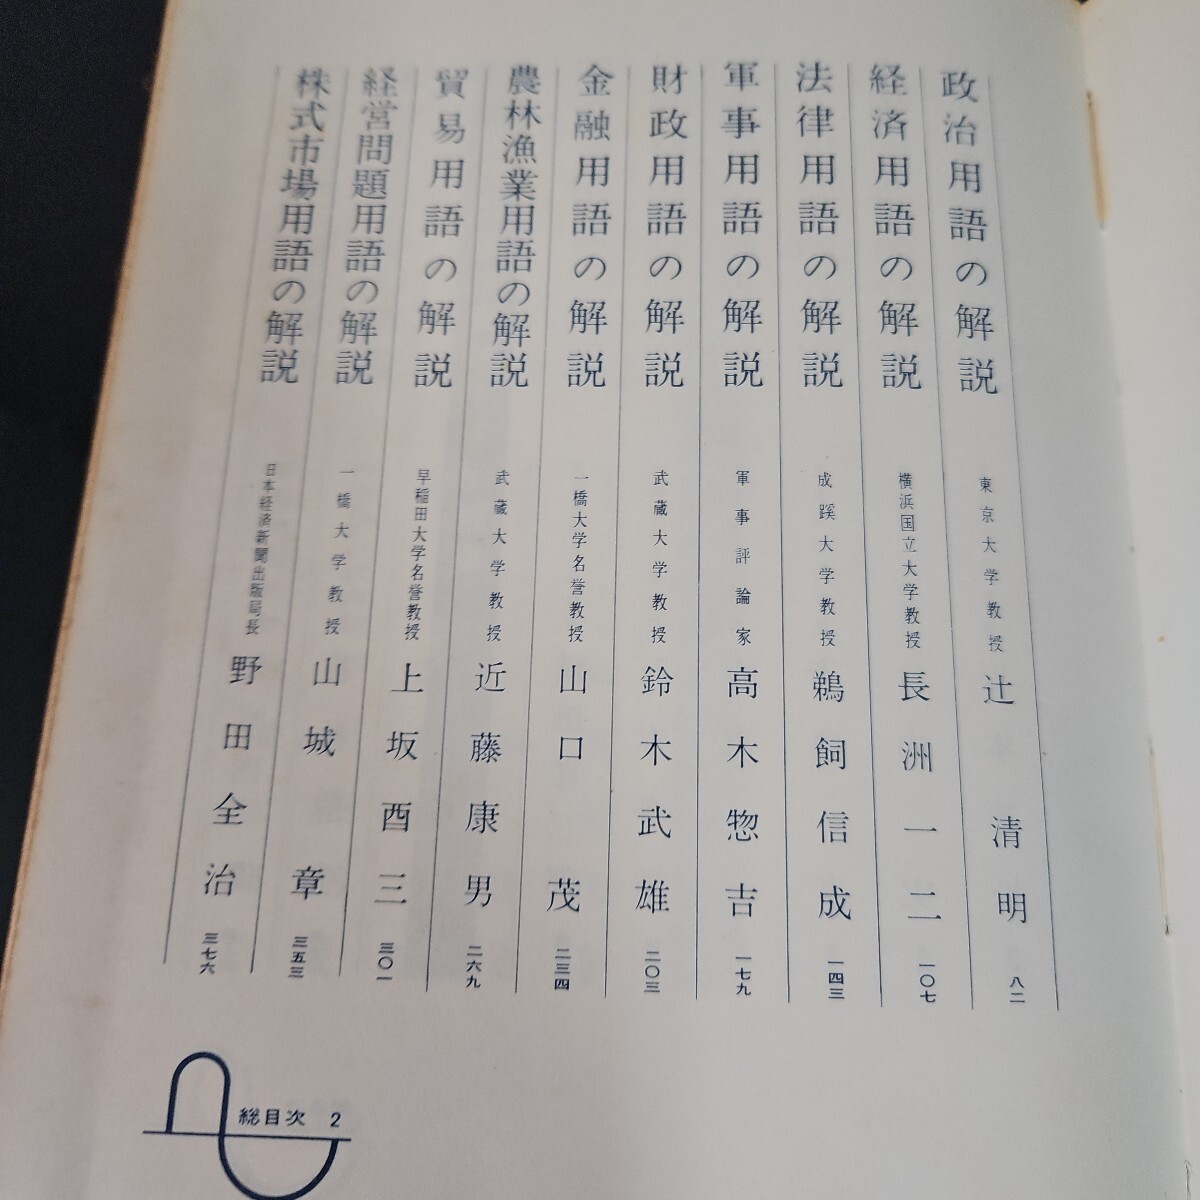 政治用語の解説 東京大学教授 辻清明 八二
経済用語の解説 横浜国立大学教授 長洲一二 一〇七
法律用語の解説 成蹊大学教授 鵜飼信成 一四三
軍事用語の解説 軍事評論家 高木惣吉 一七九
財政用語の解説 武蔵大学教授 鈴木武雄 二〇三
金融用語の解説 一橋大学名誉教授 山口茂 二三四
農林漁業用語の解説 武蔵大学教授 近藤康男 二六九
貿易用語の解説 早稲田大学名誉教授 上坂酉三 三〇一
経営問題用語の解説 一橋大学教授 山城章 三五三
株式市場用語の解説 日本経済新聞出版局長 野田全治 三七六
総目次 2